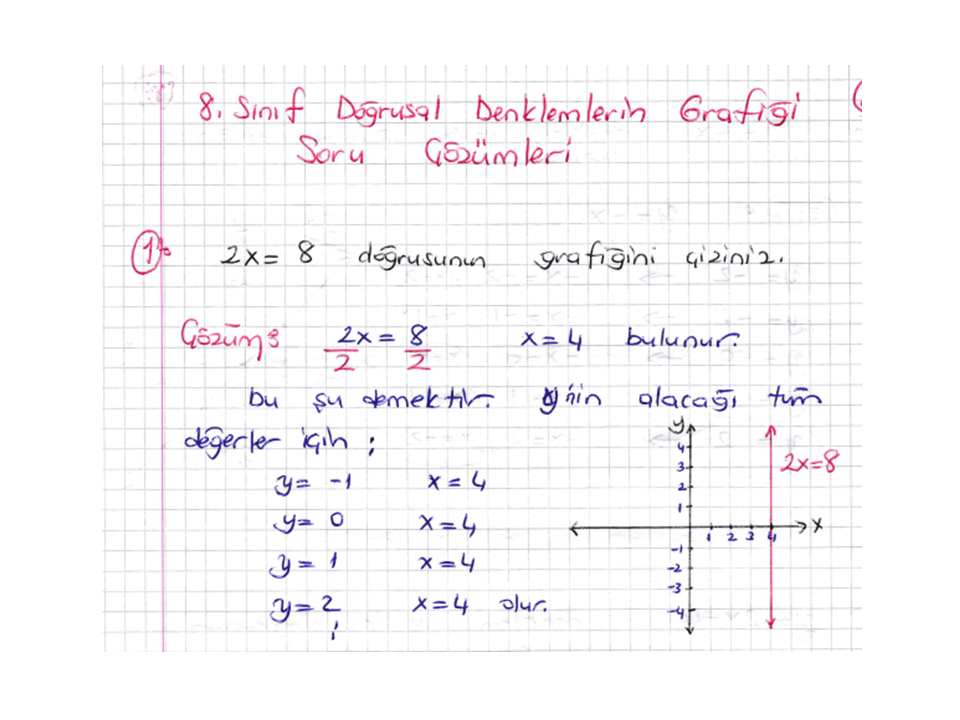 8. Sınıf Doğrusal Denklemlerin Grafiği (
Soru Çözümleri
1- 2x = 8 doğrusunun grafiğini çiziniz.
Çözüm: 2x/2 = 8/2 x = 4 bulunur.
bu şu demektir. y'nin alacağı tüm
değerler için ;
y = -1 x = 4
y = 0 x = 4
y = 1 x = 4
y = 2 x = 4 olur.
y
4
3
2
1
-1
-2
-3
-4
1 2 3 4
x
2x=8